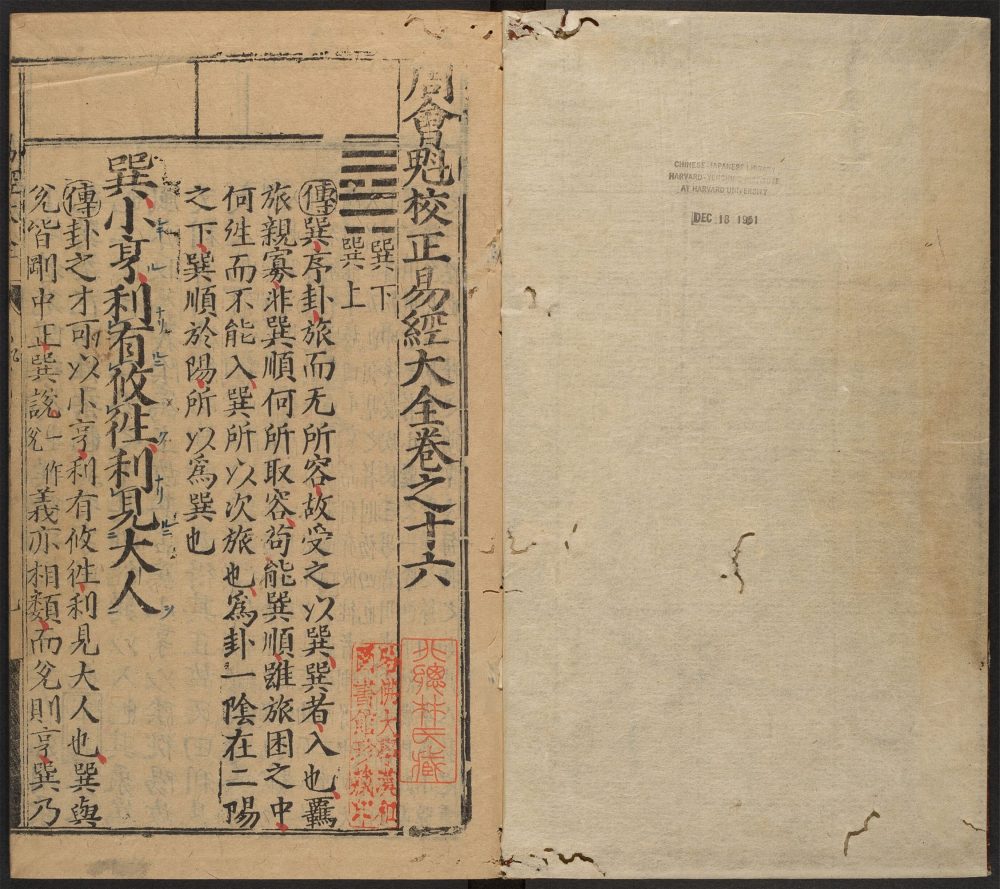 周會魁校正易經大全卷之十六
巽下
巽上
傳巽序卦旅而无所容故受之以巽巽者入也羈
旅親寡非巽順何所取容茍能巽順雖旅困之中
何徃而不能入巽所以次旅也爲卦一陰在二陽
之下巽順於陽所以爲巽也
巽小亨利有攸徃利見大人
傳卦之才可以小亨利有攸徃利見大人也巽與
兌皆剛中正巽說一作兌義亦相類而兌則亨巽乃
CHINESE-JAPANESE LIBRARY
HARVARD-YENCHING INSTITUTE
AT HARVARD UNIVERSITY
DEC 18 1951
林氏藏
哈佛大學漢和
圖書館珍藏印